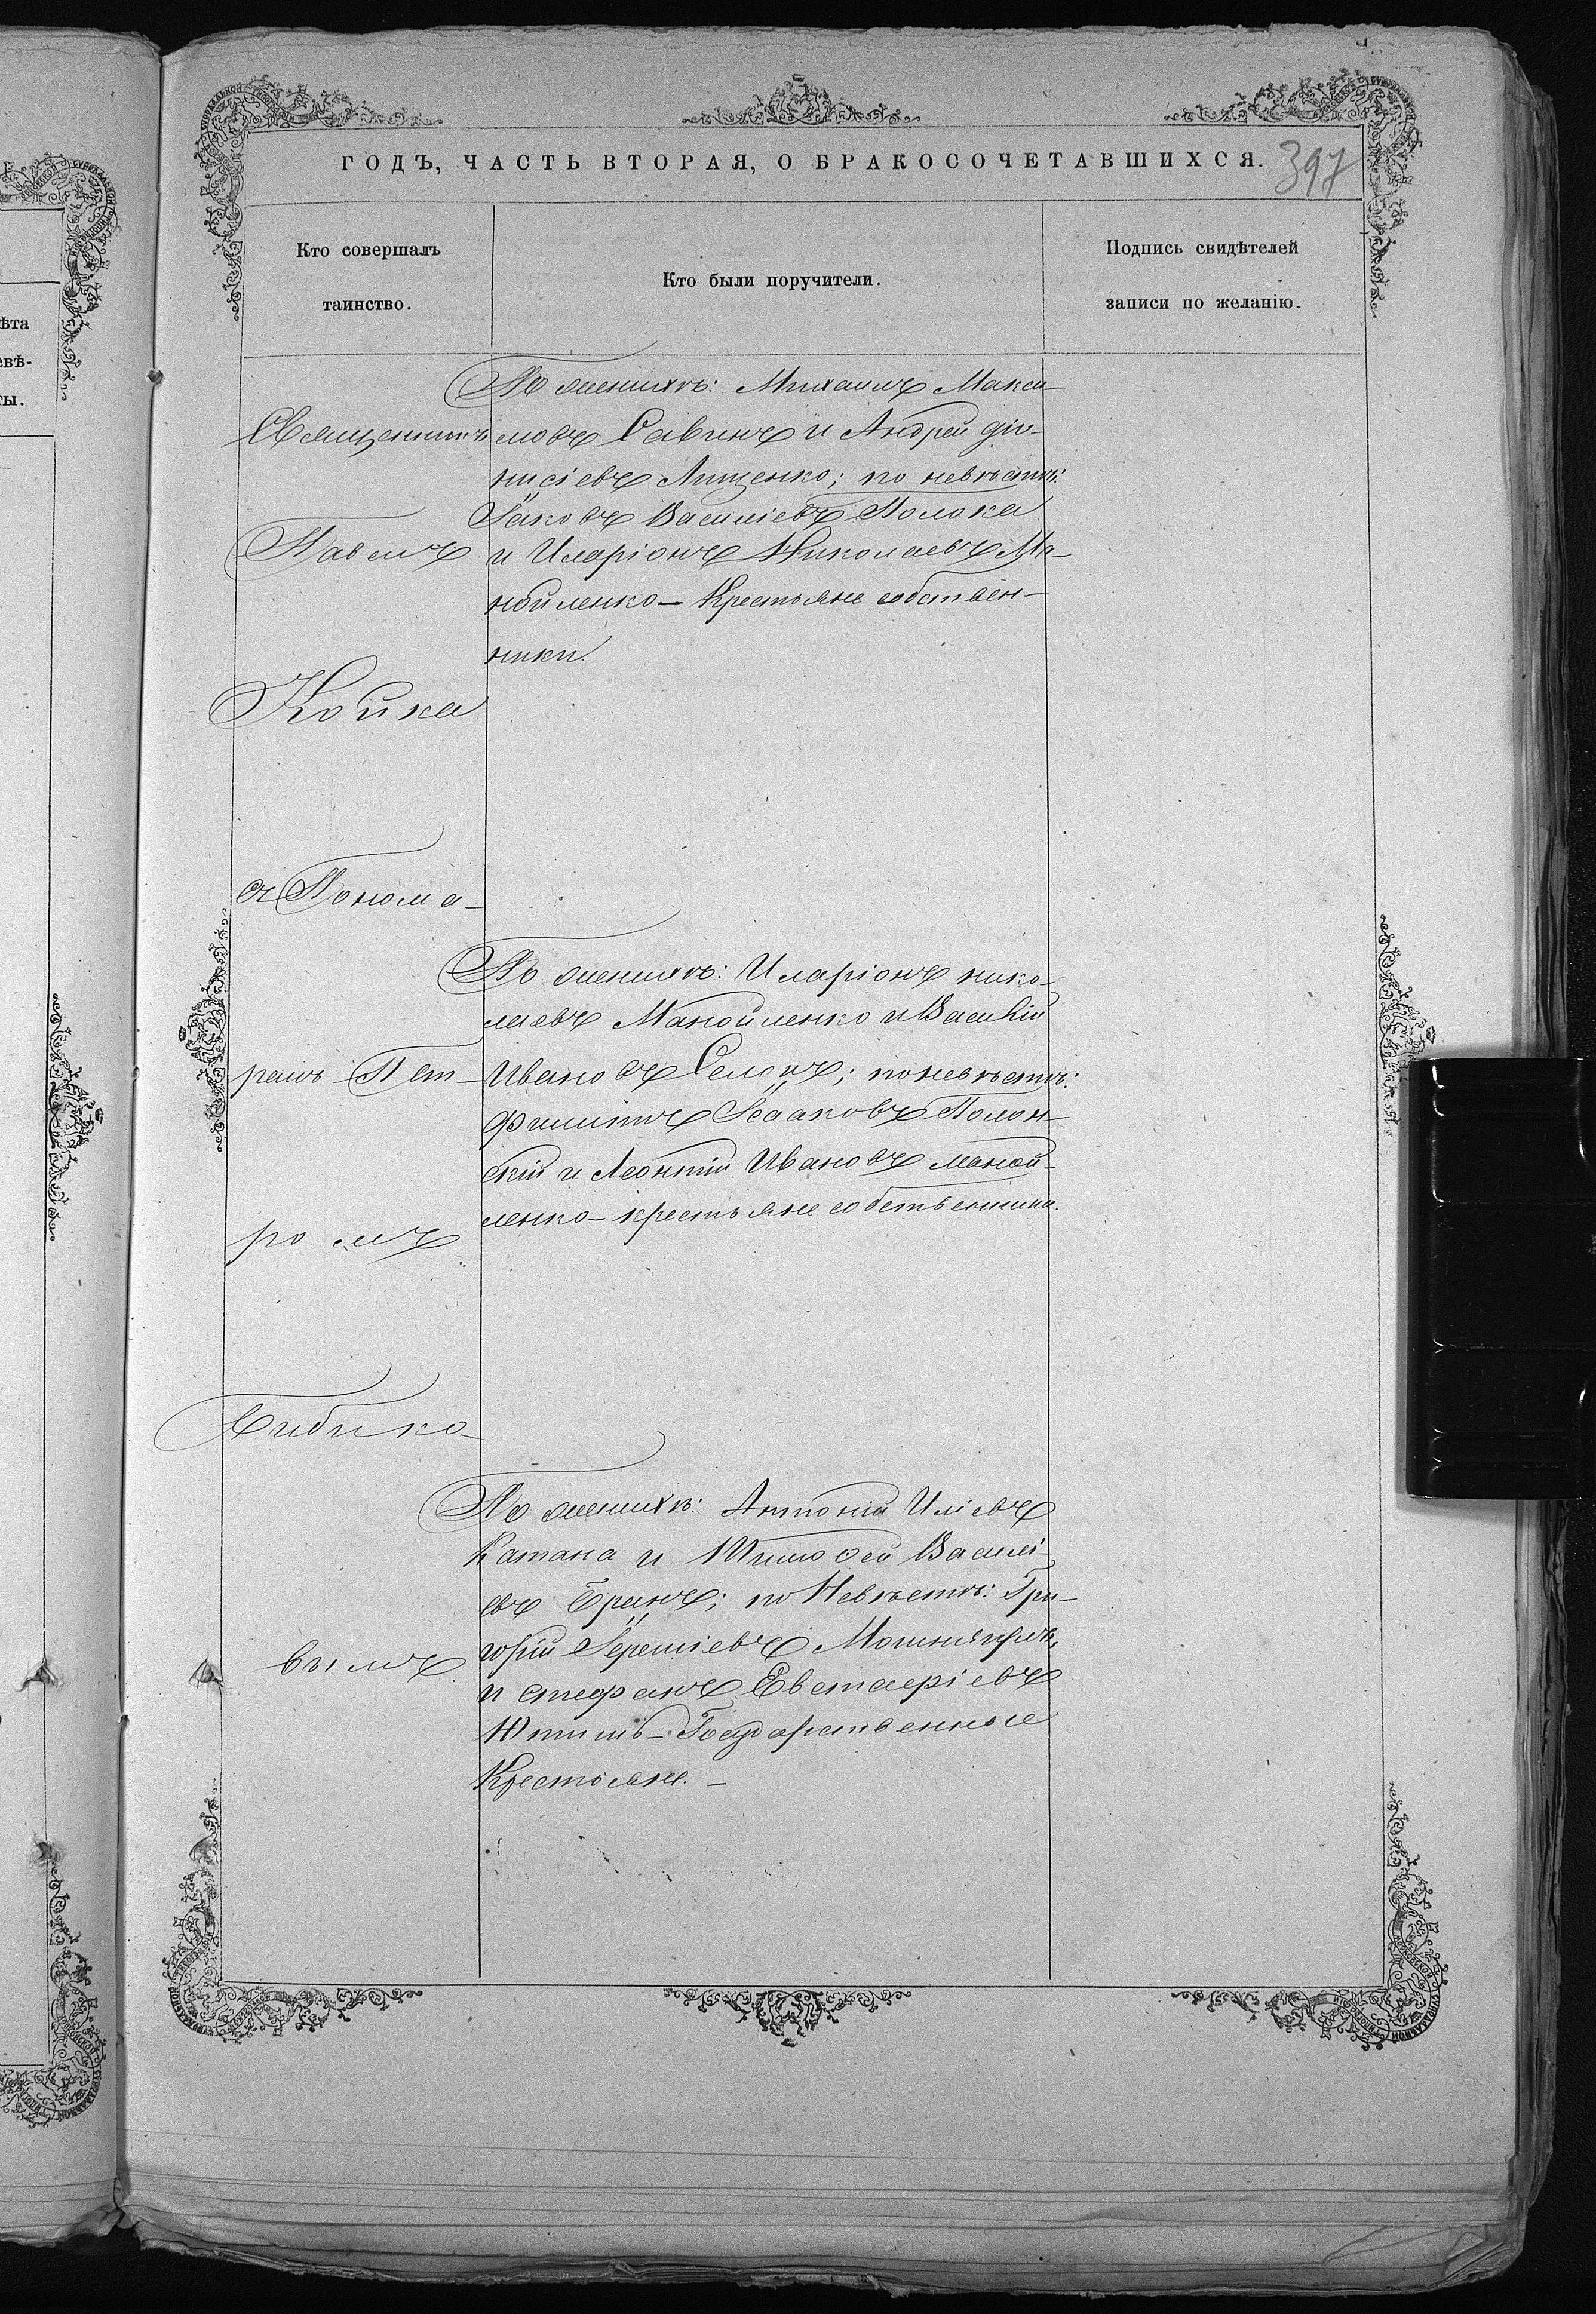 ГОДЪ, ЧАСТЬ ВТОРАЯ, О БРАКОСОЧЕТАВШИХСЯ.
397
Кто совершалъ
таинство.
Кто были поручители.
Подпись свидѣтелей
записи по желанію.
ѣта
евѣ-
ты.
Священникъ
Павелъ
Койка
съ Понома-
ремъ Пет-
ромъ
Бибико-
вымъ
По женихѣ: Михаилъ Макси-
мовъ Савинъ и Андрей Діо-
нисіевъ Лищенко; по невѣстѣ:
Іаковъ Василіевъ Полока
и Иларіонъ Николаевъ Ма-
нойленко - Крестьяне собствен-
ники.
По женихѣ: Иларіонъ Нико-
лаевъ Манойленко и Василій
Ивановъ; по невѣстѣ:
Филиппъ Ісааковъ Полон-
скій и Леонтій Ивановъ Маной-
ленко - крестьяне собственники.
По женихѣ: Антоній Иліевъ
Катана и Тимофей Василі-
евъ; по Невѣстѣ: Гри-
горій Іереміевъ
и Стефанъ Евстафіевъ
Государственные
Крестьяне. -